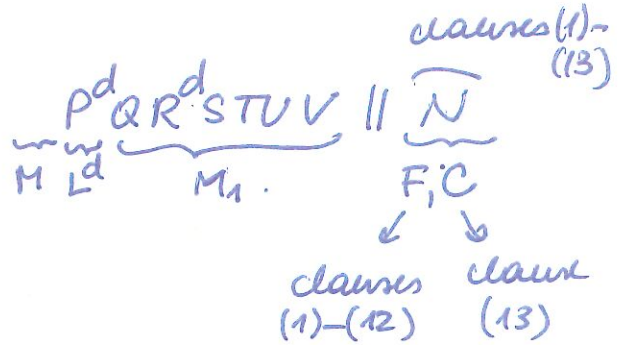 clauses (1)–
(13)
P^d Q R^d S T U V || N
M L^d M₁ . F, C
clauses clause
(1)–(12) (13)